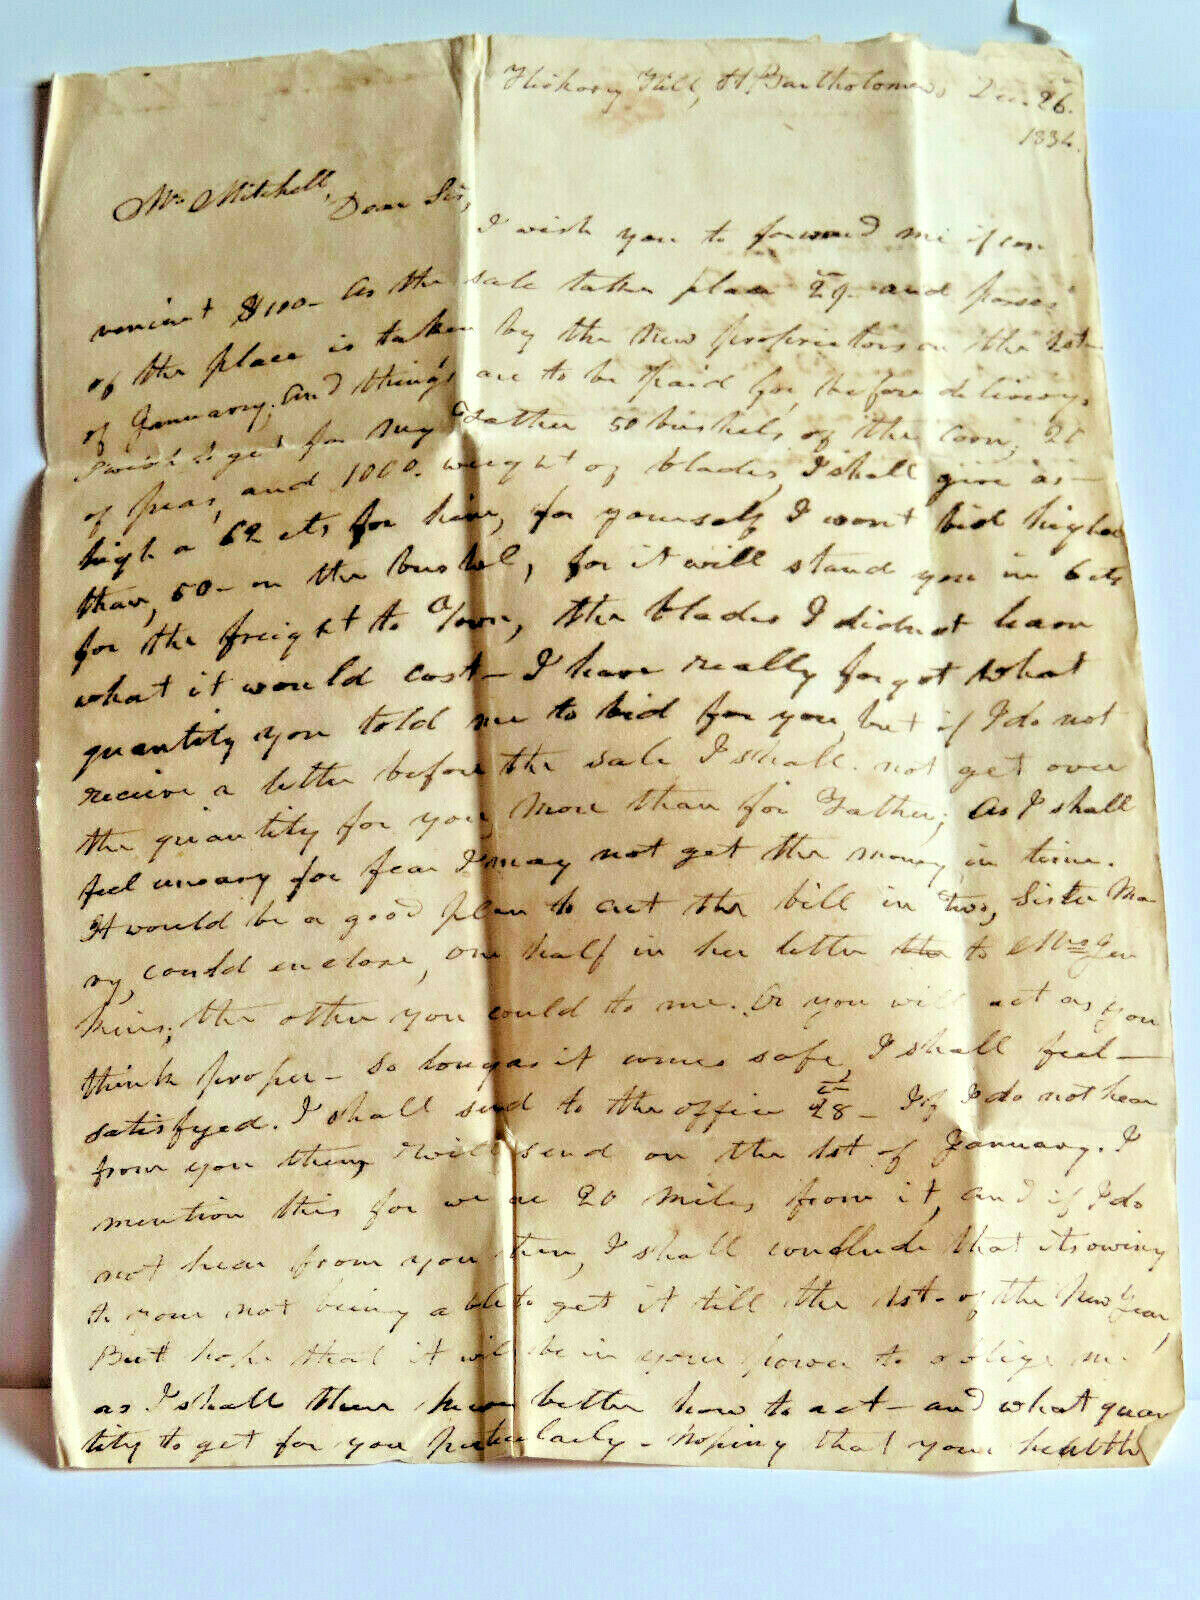 Hickory Hill, St Bartholomews Dec. 26.
1834.
Mr. Mitchell,
Dear Sir,
I wish you to forward me if con
venient $100- as the sale takes place 29- and posses
of the place is taken by the new proprietors on the 1st
of January, and things are to be paid for, before delivery.
I wish to get for my Father 50 bushels of the corn, 20
of peas, and 1000. weight of blades, I shall give as
high a 62 cts for him, for yourself I wont bid higher
than, 50- on the bushel, for it will stand you in 6 cts
for the freight to Town, the blades I did not learn
what it would cost- I have really forgot what
quantity you told me to bid for you, but if I do not
recieve a letter before the sale I shall not get over
the quantity for you, more than for Father; as I shall
feel uneasy for fear I may not get the money in time.
It would be a good plan to cut the bill in two, Sister Ma
ry, could enclose, one half in her letter the to Mrs Jen
kins; the other you could to me. Or you will act as you
think proper- so long as it comes safe, I shall feel-
satisfyed. I shall send to the office 28- If I do not hear
from you then, I will send on the 1st of January. I
mention this for we are 20 miles from it, and if I do
not hear from you then, I shall conclude that its owing
to your not being able to get it till the 1st- of the New Year,
But hope that it will be in your power to oblige me.
as I shall then know better how to act- and what quan
tity to get for you particularly- hoping that your health